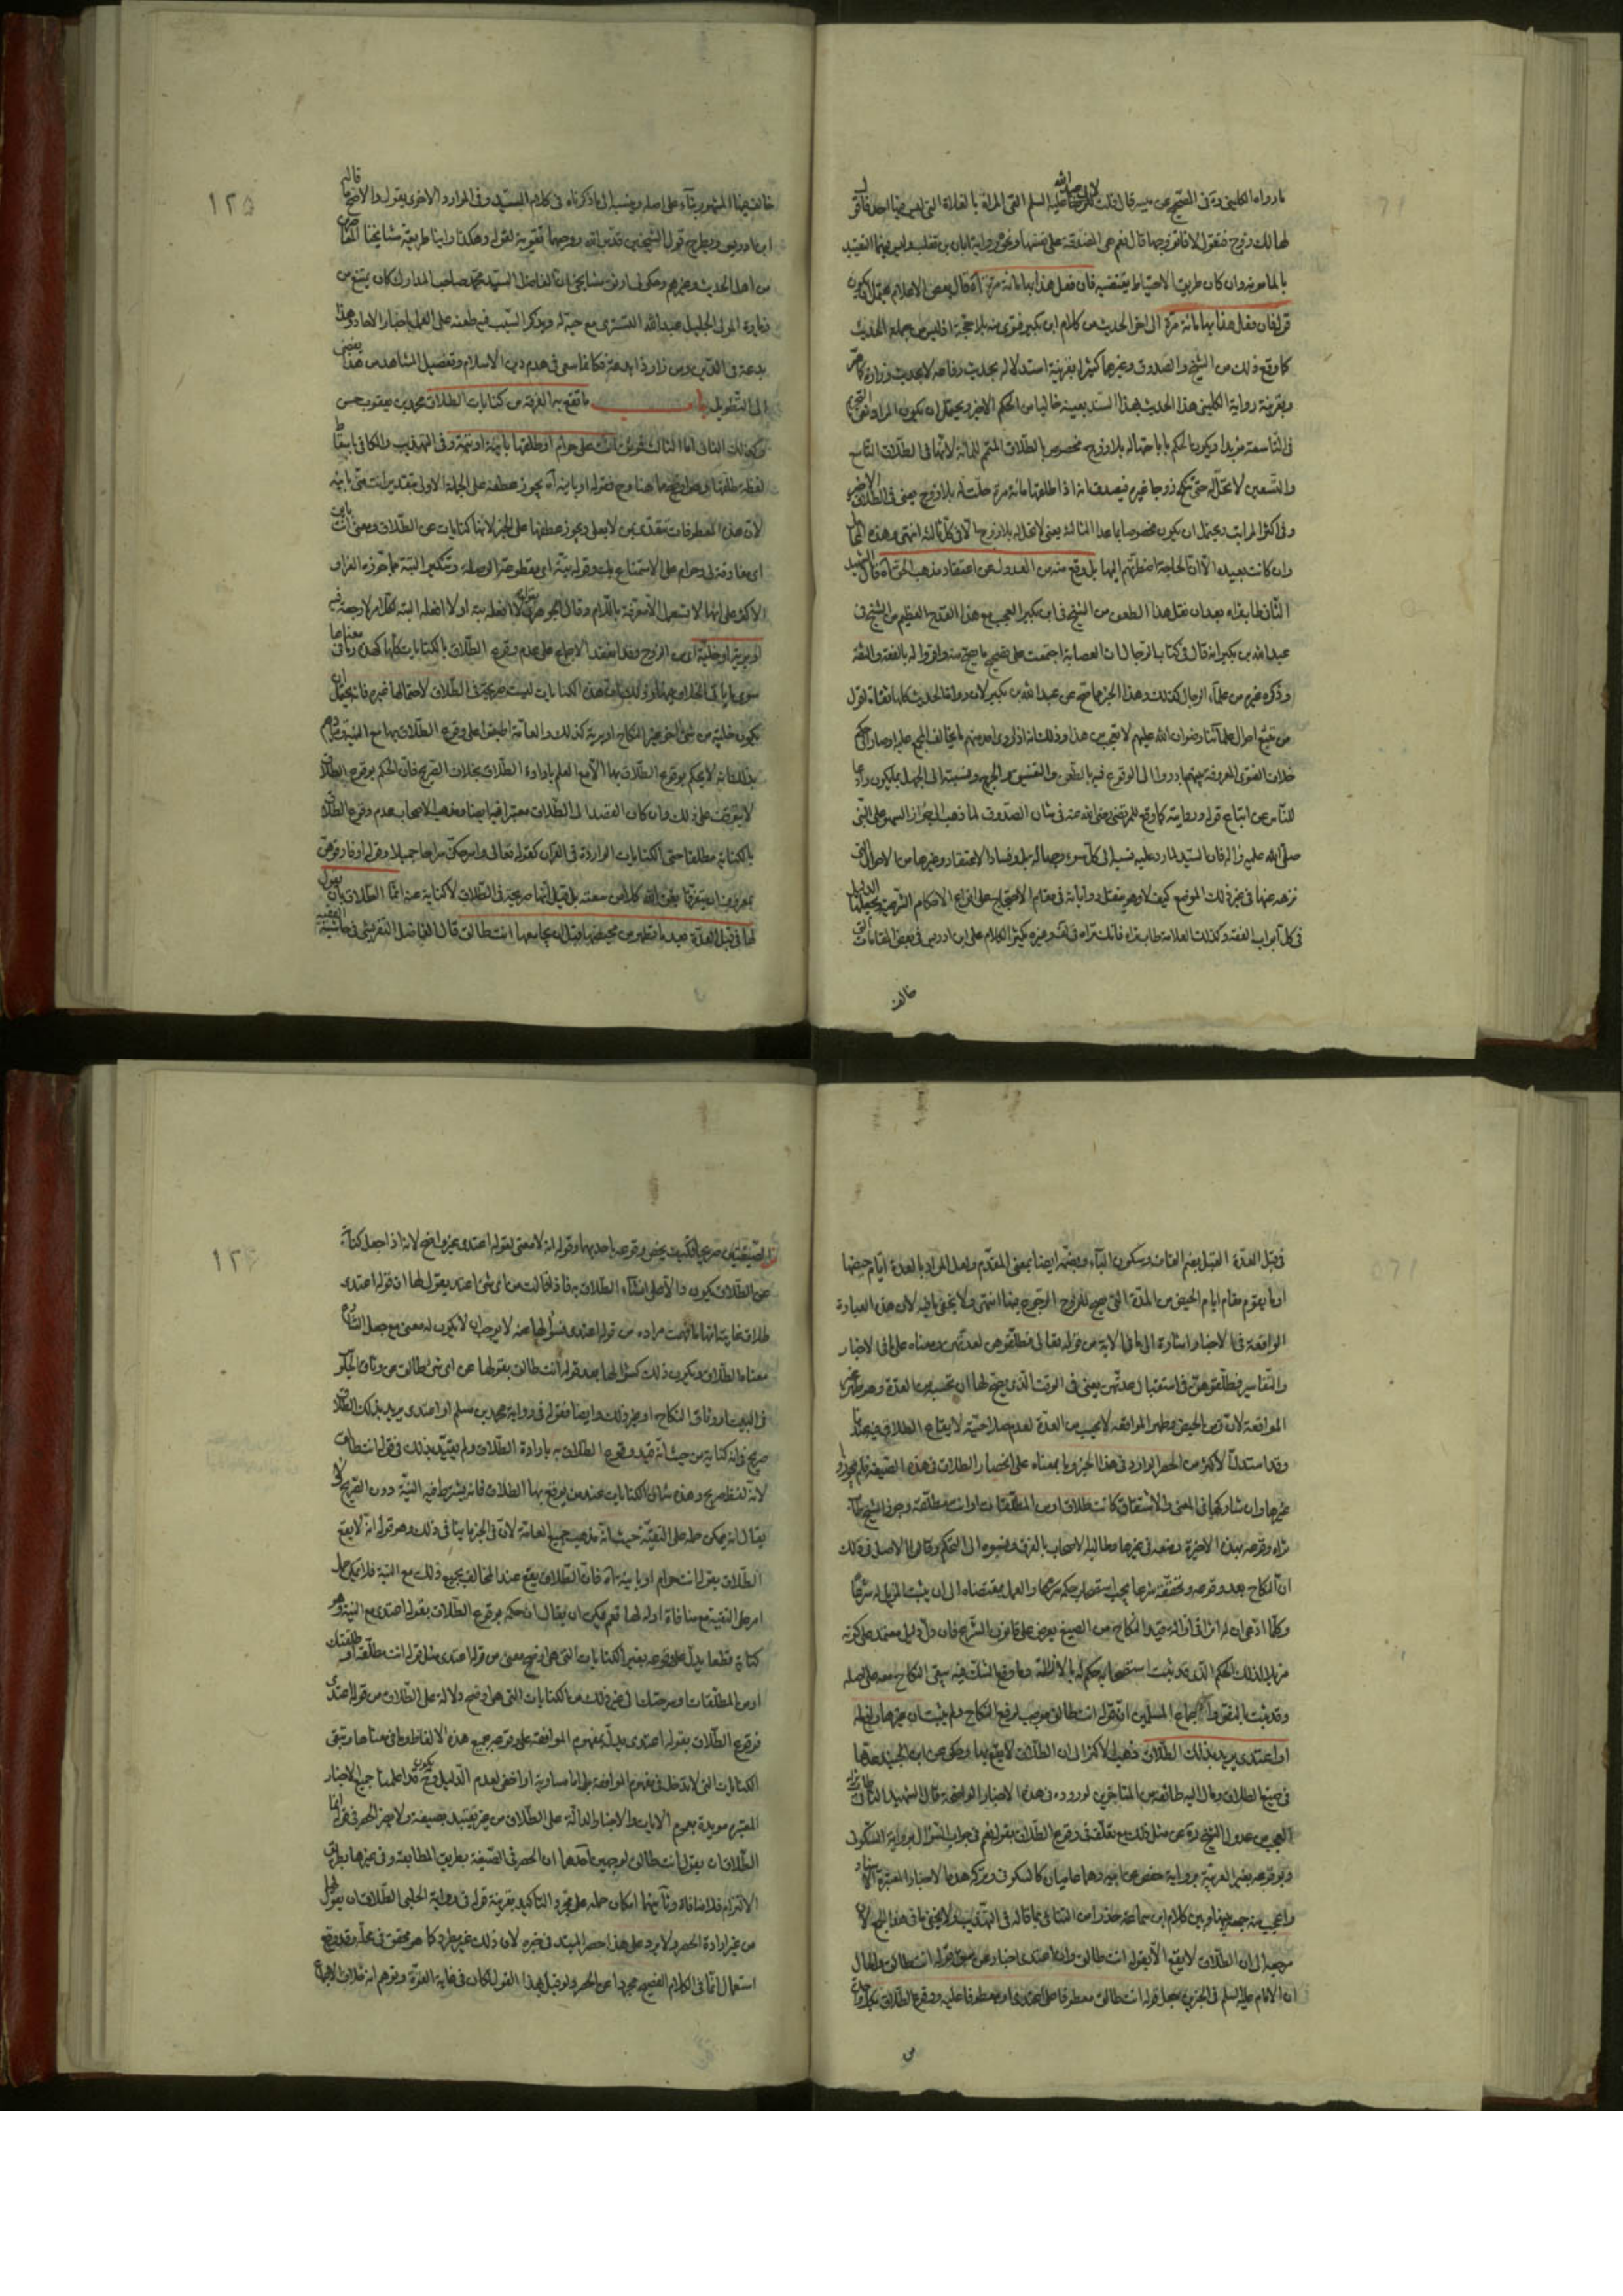 ما رواه الكليني ره في الصحيح عن ميسر قال قلت لابي عبدالله عليه السلم القى المراة بالفلاة التي ليس فيها احد فاقول
لها لك زوج فتقول لا فاتزوجها قال نعم هي المصدقة على نفسها ونحوه رواية ابان بن تغلب وليس فيهما التقييد
بالمامونه وان كان طريق الاحتياط يقتضيه فان فعل هذا بها مائة مرة آه قال بعض الاعلام يحتمل ان يكون
قوله فان فعل هذا بها مائة مرة الى اخر الحديث من كلام ابن بكير فتوى منه بلا حجة اذ ليس من جملة الحديث
كما وقع ذلك من الشيخ والصدوق وغيرهما كثيرا بقرينة استدلاله بحديث رفاعه لا بحديث زرارة كما مر
وبقرينة رواية الكليني هذا الحديث بهذا السند بعينه خاليا من الحكم الاخير ويحتمل ان يكون المراد
في التاسعة مزيدا ويكون الحكم باباحتها له بلا زوج مخصوص بالطلاق المتمم للمائة لانها في الطلاق التاسع
والتسعين لا تحل له حتى تنكح زوجا غيره فيصدق انه اذا طلقها مائة مرة حلت له بلا زوج يعني في الطلاق الاخير
وفي اكثر المراتب ويحتمل ان يكون مخصوصا بما عدا الثالثة يعني لا تحل له بلا زوج الا في كل ثالثة انتهى وهذه
وان كانت بعيدة الا ان الحاجة اضطرتهم اليها بل وقع منه من العدول عن اعتقاد مذهب الحق آه قال الشهيد
الثاني طاب ثراه بعد ان نقل هذا الطعن من الشيخ في ابن بكير العجب مع هذا القدح العظيم من الشيخ في
عبدالله بن بكير انه قال في كتاب الرجال ان العصابة اجتمعت على تصحيح ما يصح عنه واقروا له بالفقه والثقة
وذكره غيره من علماء الرجال كذلك وهذا الخبر مما صح عن عبدالله بن بكير لان رواة الحديث كلها ثقات اقول
من تتبع احوال علمائنا رضوان الله عليهم لا يتعجب من هذا وذلك انه اذا روى احد منهم ما يخالف المجمع عليه او صار الى حكم
خلاف الفتوى المعروفة بينهم بادروا الى الوقوع فيه بالطعن والتفسيق والجرح ونسبته الى الجهل ليكون رادعا
للناس عن اتباع قوله وروايته كما وقع للمرتضى رضي الله عنه في شان الصدوق لما ذهب الى جواز السهو على النبي
صلى الله عليه واله فان السيد لما رد عليه نسبه الى كل سوء وجهالة بل وفساد الاعتقاد وغيرها من الاحوال التي
نزهه عنها في غير ذلك الموضع كيف لا وهو ينقل رواياته في مقام الاحتجاج على انواع الاحكام الشرعية
في كل ابواب الفقه وكذلك العلامة طاب ثراه فانك تراه في لف وغيره يكثر الكلام على ابن ادريس في بعض المقامات التي
خالف
خالف فيها المشهور بناء على اصله وينسبه الى ما ذكرناه في كلام السيد وفي الموارد الاخرى يقول والاصح ما قاله
ابن ادريس ويطرح قول الشيخين قدس الله روحيهما تقوية لقوله وهكذا راينا طريقة مشايخنا المعاصرين
من اهل الحديث وغيرهم وحكى لي اوثق مشايخي ان الفاضل السيد محمد صاحب المدارك كان يمتنع من
زيارة المولى الجليل عبدالله التستري مع حبه له ويذكر السبب فيه طعنه على العمل باخبار الاحاد وهذا
بدعة في الدين ومن زار ذا بدعة فكانما سعى في هدم دين الاسلام وتفصيل المشاهد من هذا يفضي
الى التطويل باب ما تقع به الفرقة من كنايات الطلاق محمد بن يعقوب حسن
وكذلك الثاني اما الثالث فموثق انت على حرام او طلقها باينة او بتة وفي التهذيب والكافي باسقاط
لفظة طلقها وهو اوضح مما هنا وح فقوله او باينة آه يجوز عطفه على الجملة الاولى بتقدير انت مني باينة
لان هذه المعطوفات تتعدى بمن لا بعلى ويجوز عطفها على الخبر لانها كنايات عن الطلاق ومعنى انت باين
اي مفارقة لي وحرام على الاستمتاع بك وقوله بتة اي مقطوعة الوصلة وتنكير البتة مما جوزه الفراء و
الاكثر على انها لا تستعمل الا معرفة باللام وقال الجوهري يقال لا افعله بتة او لا افعله البتة لكل امر لا رجعة فيه
او برية او خلية اي من الزوج وقد انعقد الاجماع على عدم وقوع الطلاق بالكنايات كلها كهذه وما في معناها
سوى ما ياتي الخلاف فيه وذلك ان هذه الكنايات ليست صريحة في الطلاق لاحتمالها غيره فانه يحتمل ان
يكون خلية من شئ اخر غير النكاح او برية كذلك والعامة اطبقوا على وقوع الطلاق بها مع النية
بذلك فانه لا يحكم بوقوع الطلاق بها الا مع العلم بارادة الطلاق بخلاف الصريح فان الحكم بوقوع الطلاق
لا يتوقف على ذلك وان كان القصد الى الطلاق معتبرا فيه ايضا ومذهب الاصحاب عدم وقوع الطلاق
بالكناية مطلقا حتى الكنايات الواردة في القران كقوله تعالى واسرحكن سراحا جميلا وقوله او فارقوهن
بمعروف ان يتفرقا يغن الله كلا من سعته بل قيل انها صريحة في الطلاق لا كناية عنه انما الطلاق ان يقول
لها في قبل العدة بعد ما تطهر من محيضها قبل ان يجامعها انت طالق قال الفاضل التفريشي في حاشية الفقيه
في قبل العدة القبل بضم القاف وسكون الباء وبضمه ايضا بمعنى المقدم ولعل المراد بالعدة ايام حيضها
او ما يقوم مقام ايام الحيض من المدة التي يصح للزوج الرجوع فيها انتهى ولا يخفى ما فيه لان هذه العبارة
الواقعة في الاخبار اشارة الى ما في الاية من قوله تعالى فطلقوهن لعدتهن ومعناه على ما في الاخبار
والتفاسير فطلقوهن في استقبال عدتهن يعني في الوقت الذي يصح لها ان تحسب من العدة وهو طهر غير
المواقعة لان زمن الحيض وطهر المواقعه لا يحسب من العدة لعدم صلاحيته لايقاع الطلاق فيه
وقد استدل الاكثر من الحصر الوارد في هذا الخبر وما بمعناه على انحصار الطلاق في هذه الصيغة فلم يجوزوا
غيرها وان شاركها في المعنى والاشتقاق كانت طلاق او من المطلقات او انت مطلقة وجوز الشيخ طاب
ثراه وقوعه بهذه الاخيرة ومنعه في غيرها وطالبه الاصحاب بالفرق ونسبوه الى التحكم وقالوا الاصل في ذلك
ان النكاح بعد وقوعه وتحققه شرعا يجب استصحاب حكمه شرعا والعمل بمقتضاه الى ان يثبت المزيل له شرعا
وكلما ادعي ان له اثرا في ازالة قيد النكاح من الصيغ يعرض على قانون الشرع فان دل دليل معتمد على كونه
مزيلا لذلك الحكم الذي قد ثبت استصحابه حكم له بالازالة وما وقع الشك فيه يبقى النكاح معه على اصله
وقد ثبت بالنص واجماع المسلمين ان قوله انت طالق موجب لرفع النكاح ولم يثبت ان غيرها رافع له
او اعتدي يريد بذلك الطلاق ذهب الاكثر الى ان الطلاق لا يقع بها وحكي عن ابن الجنيد عدها
في صيغ الطلاق ومال اليه طائفة من المتاخرين لوروده في هذه الاخبار الواضحة قال الشهيد الثاني طاب ثراه
العجب من عدول الشيخ ره عن مثل ذلك مع تعلقه في وقوع الطلاق بقوله نعم في جواب السؤال برواية السكوني
وبوقوعه بغير العربية برواية حفص عن ابيه وهما عاميان كالسكوني وتركه هذه الاخبار المعتبرة الاسناد
واعجب منه جمعه بينها وبين كلام ابن سماعة حذرا من التنافي بما قاله في التهذيب ولا يخفى ما في هذا الجمع لان
مرجعه الى ان الطلاق لا يقع الا بقوله انت طالق وان اعتدي اخبار عن سبق قوله انت طالق والحال
ان الامام عليه السلم في الخبرين جعل قوله انت طالق معطوفا على اعتدي او معطوفا عليه ووقوع الطلاق بكل واحد
من
الصيغتين صريحا فكيف يخص وقوعه باحديهما وقوله انه لا معنى لقوله اعتدي غير واضح لانه اذا جعل كناية
عن الطلاق يكون دالا على انشاء الطلاق به فاذا قالت من اي شئ اعتد يقول لها ان قوله اعتدي
طلاق غاية انها ما فهمت مراده من قوله اعتدي فسؤالها عنه لا يوجب ان لا يكون له معنى مع جعل الشارع
معناه الطلاق ويكون ذلك كسؤالها بعد قوله انت طالق بقولها عن اي شئ طالق عن وثاق
في البيت او وثاق النكاح او غير ذلك وايضا فقوله في رواية محمد بن مسلم او اعتدي يريد بذلك الطلاق
صريح في انه كناية من حيث انه قيد وقوع الطلاق به بارادة الطلاق ولم يقيد بذلك في قوله انت طالق
لانه لفظ صريح وهذه شان الكنايات عند من يوقع بها الطلاق فانه يشترط فيه النية دون الصريح لا
يقال انه يمكن حمله على التقية حيث انه مذهب جميع العامة لان في الخبر ما ينافي ذلك وهو قوله انه لا يقع
الطلاق بقوله انت حرام او باينة آه فان الطلاق يقع عند المخالف بجميع ذلك مع النية فلا يمكن حمل
امر على التقية مع منافاة اوله لها نعم يمكن ان يقال ان حكمه بوقوع الطلاق بقوله اعتدي مع النية وهو
كناية قطعا يدل على وقوعه بغيره من الكنايات التي هي اوضح معنى من قوله اعتدي مثل قوله انت مطلقة او طلقتك
او من المطلقات وسرحتك الى غير ذلك من الكنايات التي هي اوضح دلالة على الطلاق من قوله اعتدي
فوقوع الطلاق بقوله اعتدي يدل بمفهوم الموافقة على وقوعه بجميع هذه الالفاظ وما في معناها وتبقى
الكنايات التي لا تدخل في مفهوم الموافقة بل اما مساوية او اخفى لعدم الدليل وح يكون قد اعملنا جميع الاخبار
المعتبره مويدة بعموم الايات والاخبار الدالة على الطلاق من غير تقييد بصيغة ولا يضر الحصر في قوله انما
الطلاق ان يقول انت طالق لوجهين احدهما ان الحصر في الصيغة بطريق المطابقة وفي غيرها بطريق
الالتزام فلا منافاة وثانيهما امكان حمله على مجرد التاكيد بقرينة قوله في رواية الحلبي الطلاق ان يقول لها
من غير ارادة الحصر ولا يرد على هذا حصر المبتدا في خبره لان ذلك غير مطرد كما هو محقق في محله وقد وقع
استعمال انما في الكلام الفصيح مجردا عن الحصر ولو قيل بهذا القول لكان في غاية القوة وتوهم انه خلاف الاجماع
١٢٥